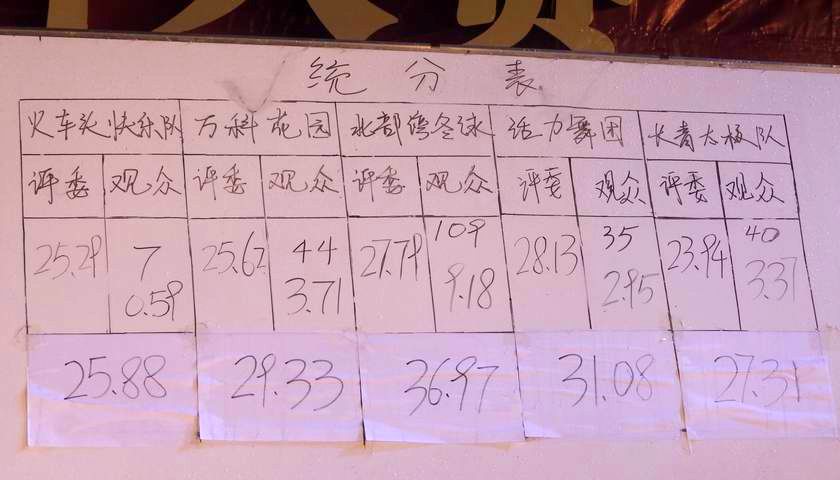 统分表
火车头快乐队 万科花园 北部湾奎球 活力舞团 长青太极队
评委 观众 评委 观众 评委 观众 评委 观众 评委 观众
25.29 7 25.62 44 27.79 109 28.13 35 23.94 40
0.59 3.71 9.18 2.95 3.37
25.88 29.33 36.97 31.08 27.31